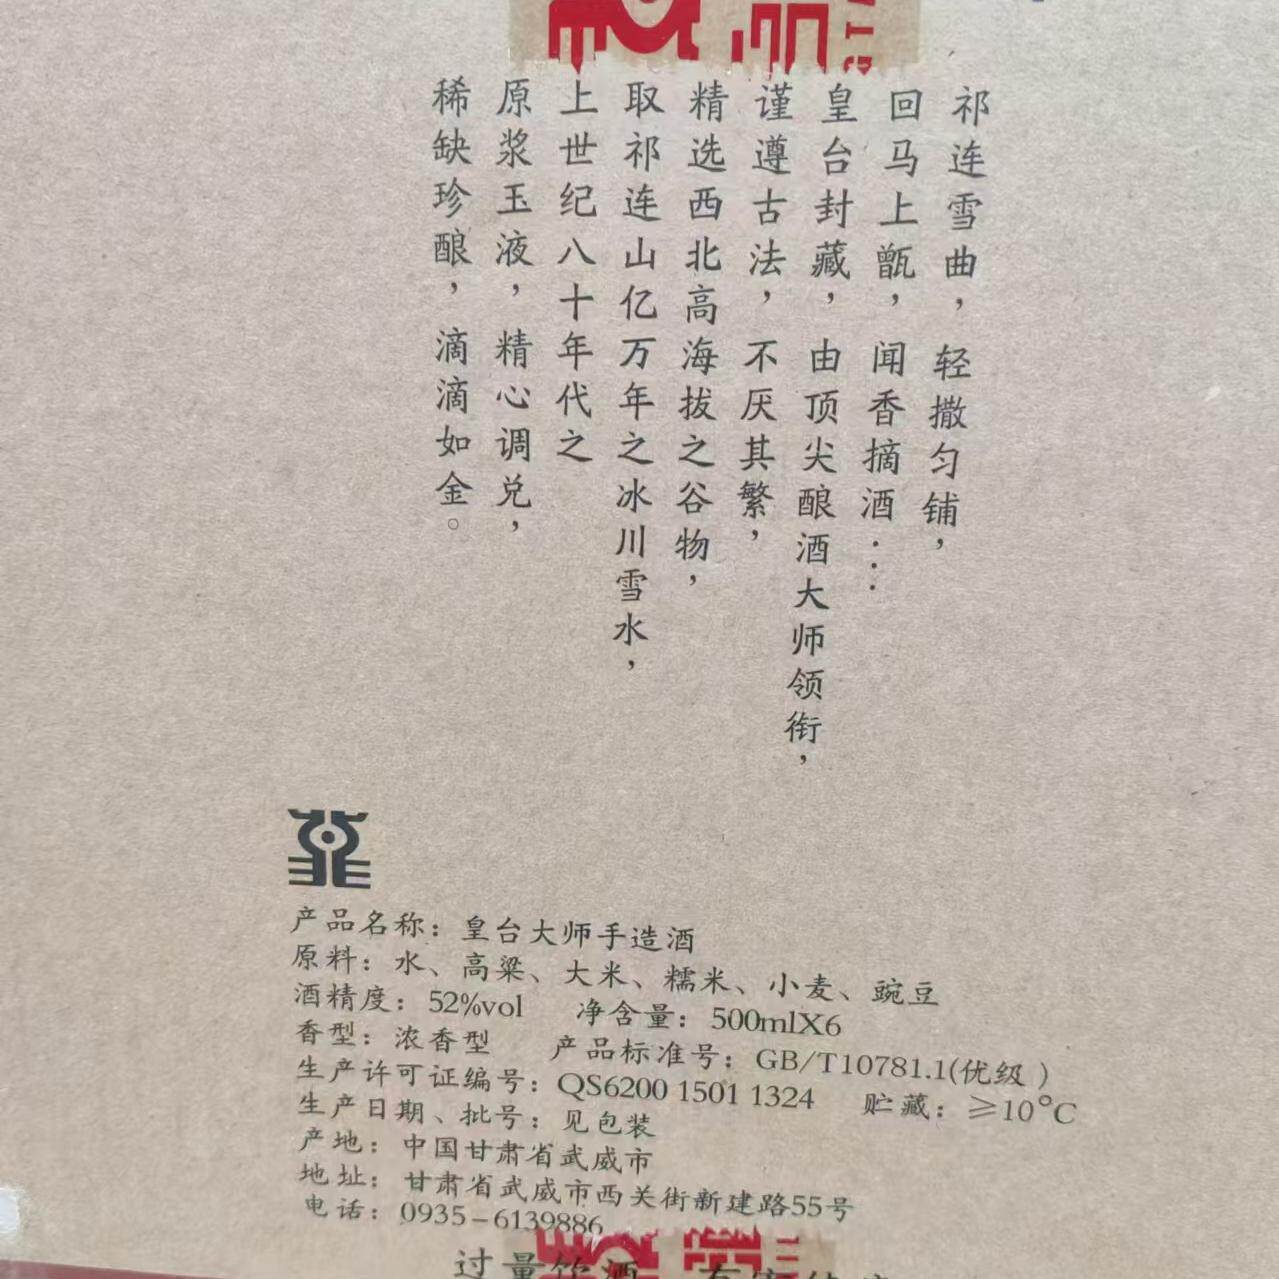 祁连雪曲，轻撒匀铺，
回马上甑，闻香摘酒...
皇台封藏，由顶尖酿酒大师领衔，
谨遵古法，不厌其繁，
精选西北高海拔之谷物，
取祁连山亿万年之冰川雪水，
上世纪八十年代之
原浆玉液，精心调兑，
稀缺珍酿，滴滴如金。
产品名称：皇台大师手造酒
原料：水、高粱、大米、糯米、小麦、豌豆
酒精度：52%vol 净含量：500mlX6
香型：浓香型 产品标准号：GB/T10781.1(优级)
生产许可证编号：QS6200 1501 1324 贮藏：≥10°C
生产日期、批号：见包装
产地：中国甘肃省武威市
地址：甘肃省武威市西关街新建路55号
电话：0935-6139886
过量饮酒